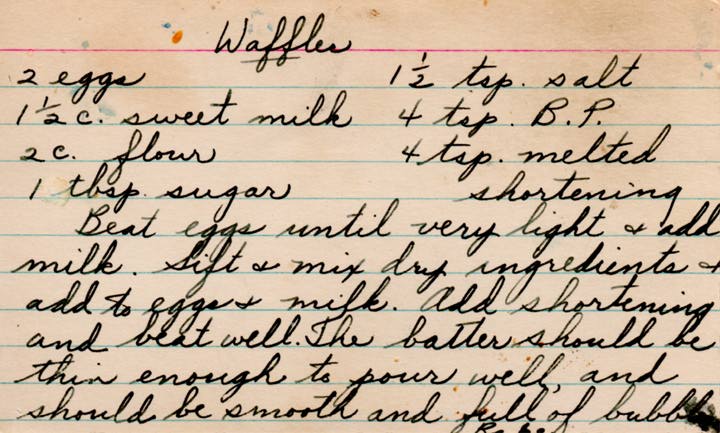 Waffles
2 eggs 1½ tsp. salt
1½ c. sweet milk 4 tsp. B.P.
2 c. flour 4 tsp. melted
1 tbsp. sugar shortening
Beat eggs until very light & add
milk. Sift & mix dry ingredients &
add to eggs & milk. Add shortening
and beat well. The batter should be
thin enough to pour well, and
should be smooth and full of